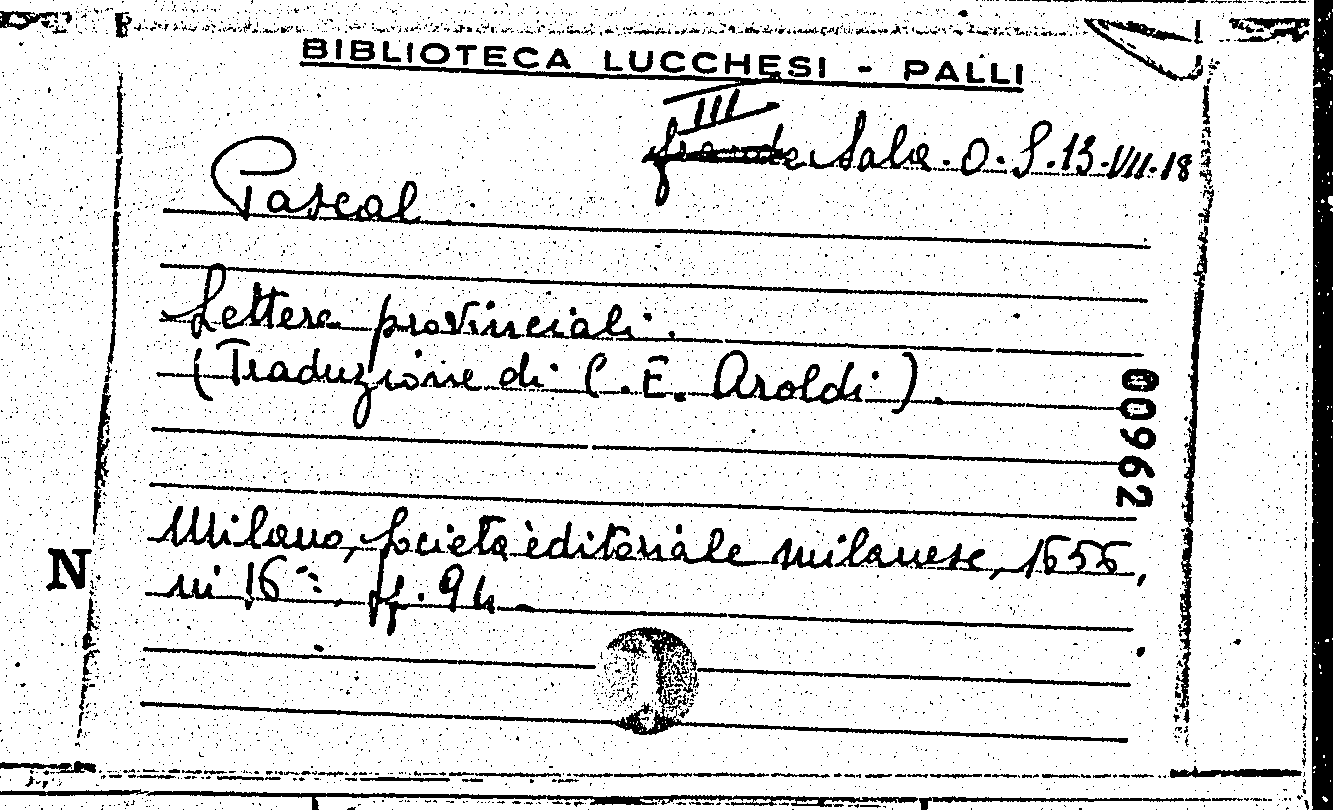 BIBLIOTECA LUCCHESI - PALLI
III
Sala. O. S. 13. VII. 18
Pascal
Lettere provinciali.
(Traduzione di C. E. Aroldi).
00962
Milano, Società editoriale milanese, 1656,
N
in 16°., pp. 94.